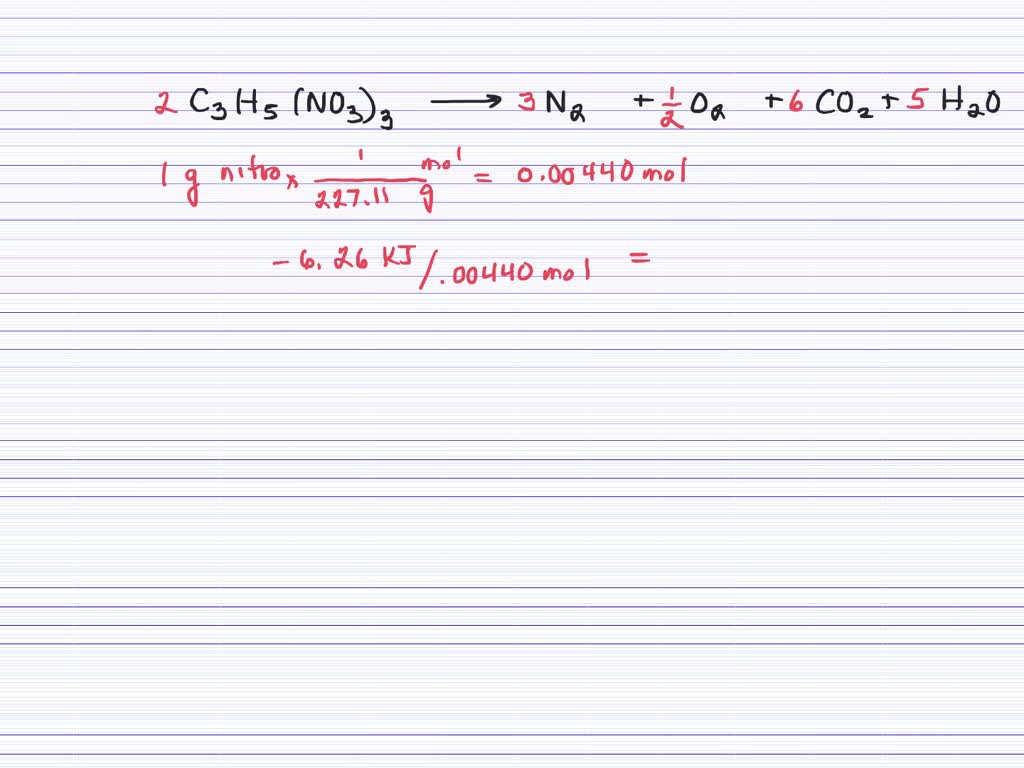 2 C₃H₅(NO₃)₃ ⟶ 3 N₂ + 1/2 O₂ + 6 CO₂ + 5 H₂O
1 g nitro x 1 mol / 227.11 g = 0.00440 mol
- 6.26 KJ / .00440 mol =